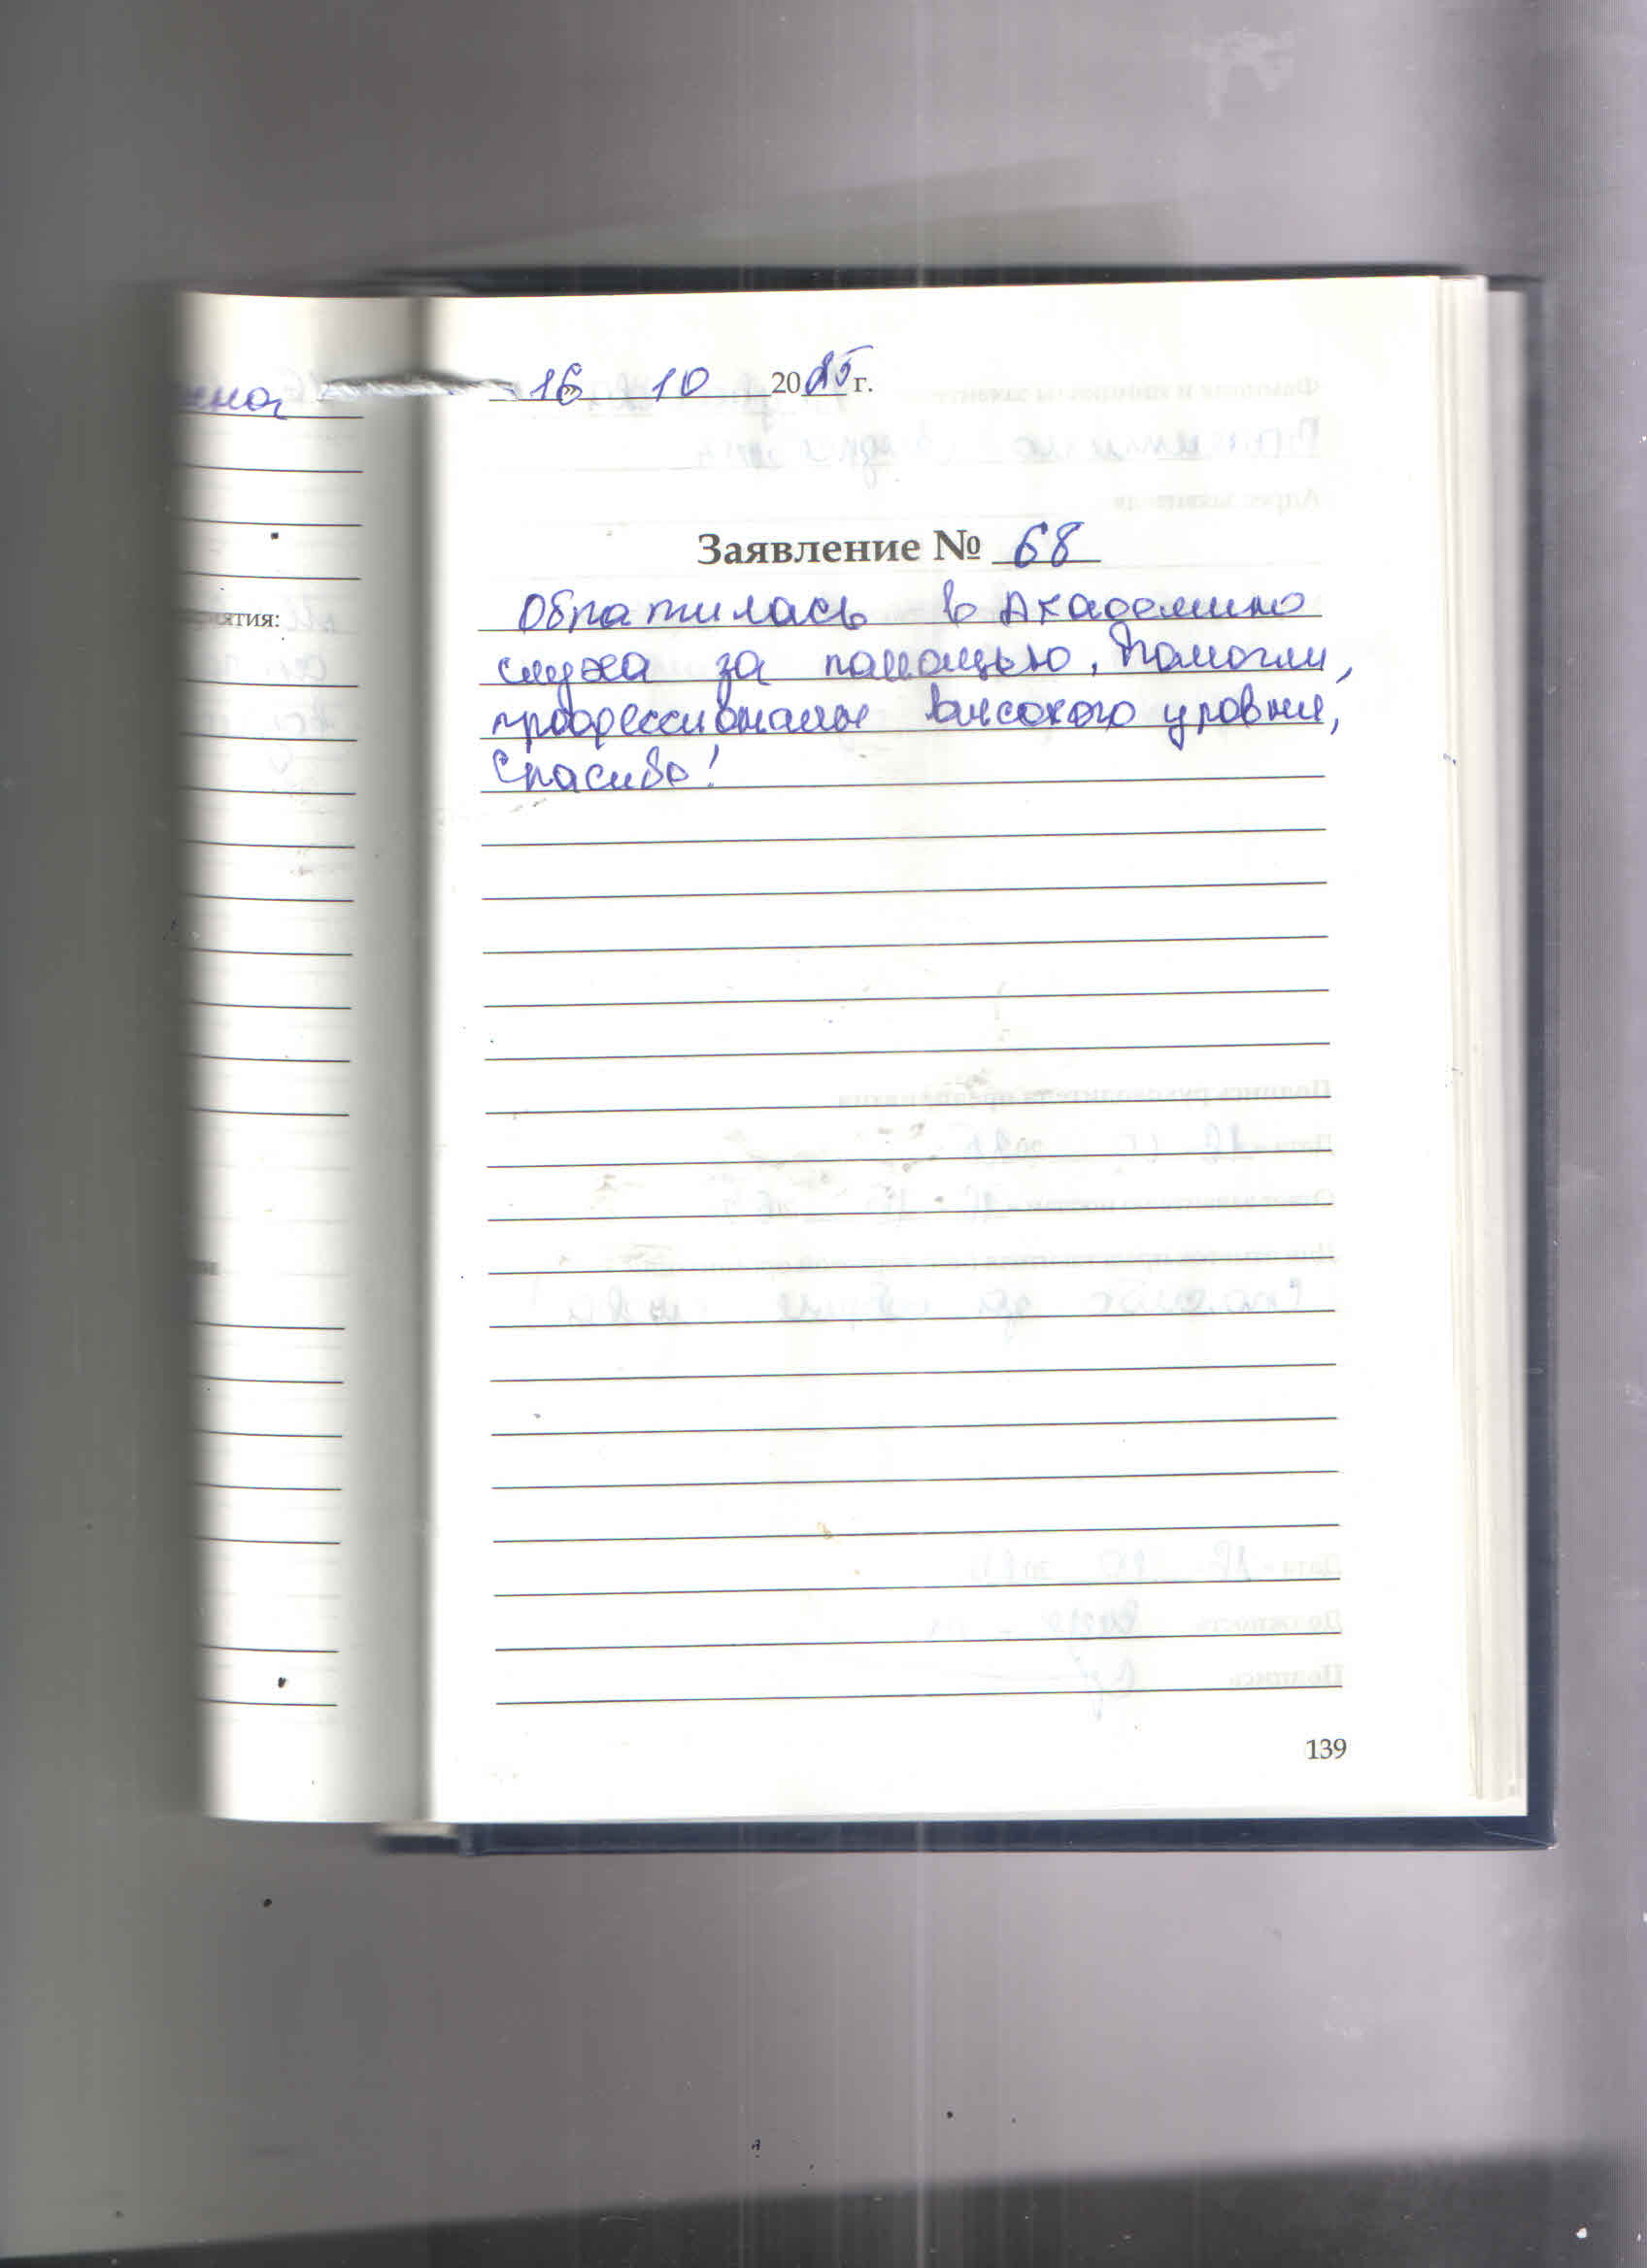 жна
16 10 2025 г.
Заявление № 68
Обратилась в Академию
слуха за помощью, помогли,
профессионалы высокого уровня,
Спасибо!
ятия:
139